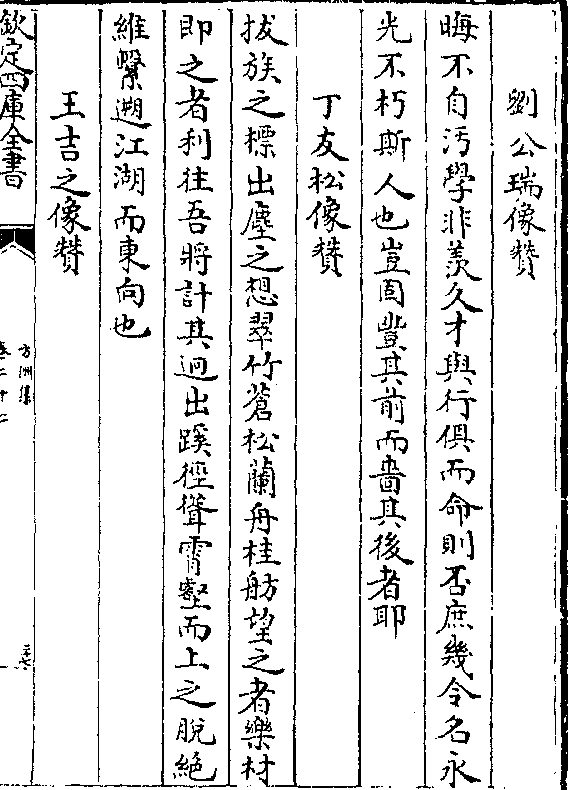 劉公瑞像贊
晦不自污學非羨久才與行俱而命則否庶幾令名永
光不朽斯人也豈固豐其前而嗇其後者耶
丁友松像贊
拔族之標出塵之想翠竹蒼松蘭舟桂舫望之者樂材
即之者利往吾將計其迥出蹊徑聳霄壑而上之脫絶
維縶遡江湖而東向也
王吉之像贊
欽定四庫全書
方洲集
卷二十二